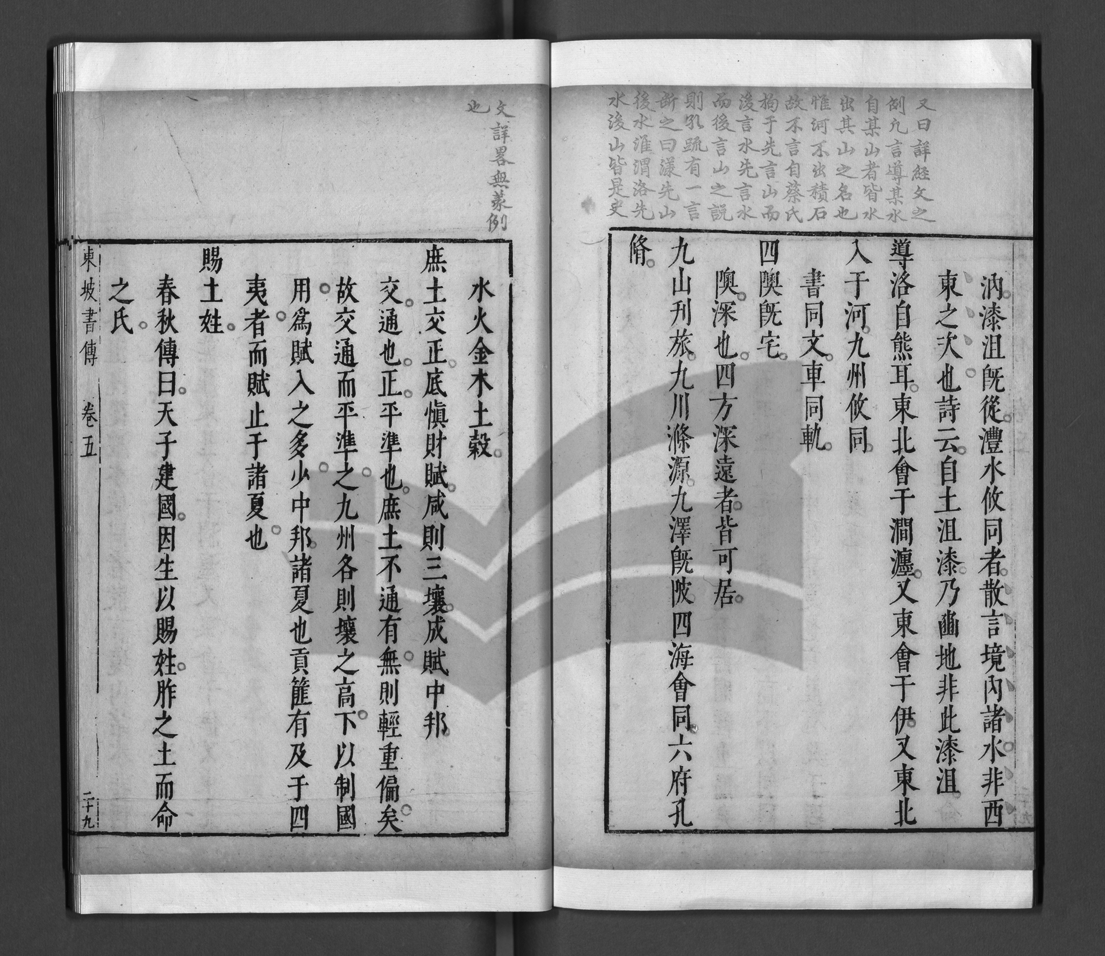 又曰詳經文之
例九言導某水
自某山者皆水
出其山之名也
惟河不出積石
故不言自蔡氏
拘于先言山而
後言水先言水
而後言山之說
則孔疏有一言
斷之曰漾先山
後水淮渭洛先
水後山皆是史
汭漆沮旣從灃水攸同者散言境內諸水非西
東之次也詩云自土沮漆乃豳地非此漆沮
導洛自熊耳東北會于澗瀍又東會于伊又東北
入于河九州攸同
書同文車同軌
四隩旣宅
隩深也四方深遠者皆可居
九山刊旅九川滌源九澤旣陂四海會同六府孔
脩
文詳畧無義例
也
水火金木土穀
庶土交正底愼財賦咸則三壤成賦中邦
交通也正平準也庶土不通有無則輕重偏矣
故交通而平準之九州各則壤之高下以制國
用爲賦入之多少中邦諸夏也貢篚有及于四
夷者而賦止于諸夏也
賜土姓
春秋傳曰天子建國因生以賜姓胙之土而命
之氏
東坡書傳 卷五 二十九